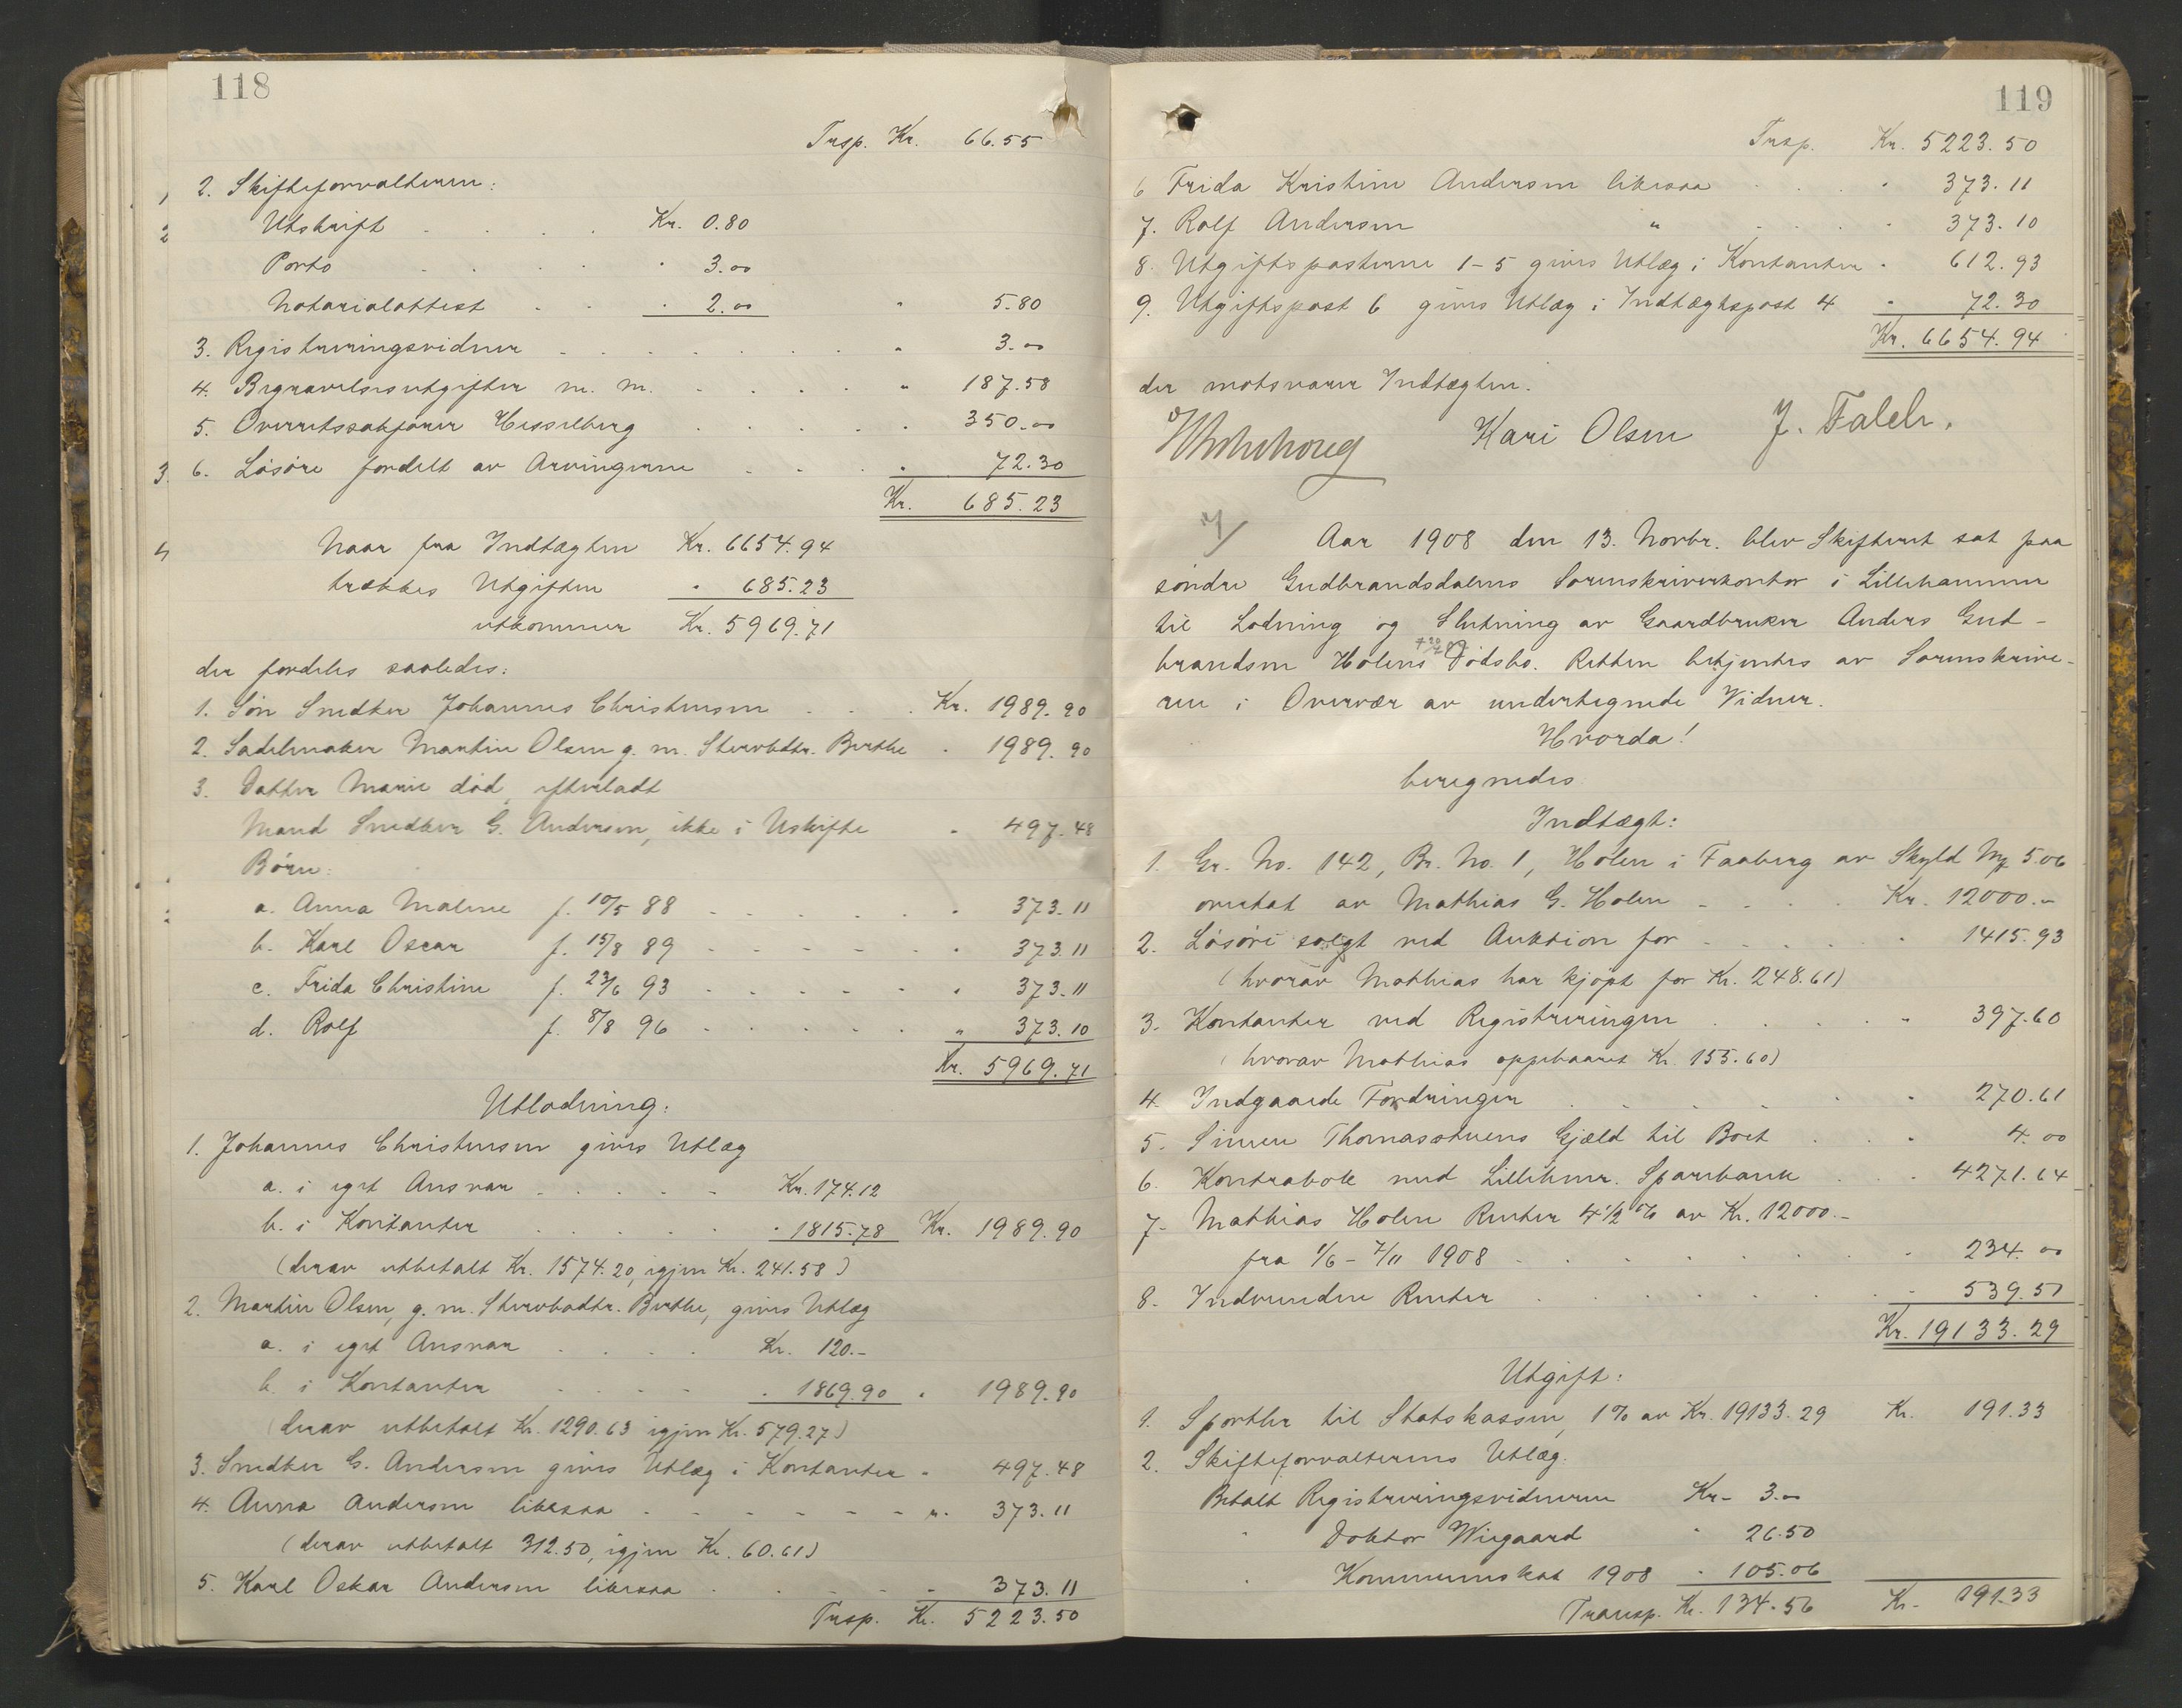 118
Trsp. Kr. 66.55
2. Skifteforvalteren:
Utskrift . . . . Kr. 0.80
Porto . . . . . 3.00
Notarialattest . . . 2.00 " 5.80
3. Registreringsvidner . . . . . . . " 3.00
4. Begravelsesutgifter m. m. . . . . " 187.58
5. Overretssakfører Hesselberg . . . . . 350.00
6. Løsøre fordelt av Arvingerne . . . . 72.30
Kr. 685.23
Naar fra Indtægten Kr. 6654.94
trækkes Utgiften " 685.23
utkommer Kr. 5969.71
der fordeles saaledes:
1. Søn Snedker Johannes Christensen . . . Kr. 1989.90
2. Sadelmaker Martin Olsen g. m. Stervbdtr. Berthe . 1989.90
3. Datter Marie død, efterladt
Mand Snedker G. Andersen, ikke i Uskifte " 497.48
Børn:
a. Anna Malene f. 10/5 88 . . . . . . . 373.11
b. Karl Oscar f. 15/8 89 . . . . . . . 373.11
c. Frida Christine f. 23/6 93 . . . . . . 373.11
d. Rolf f. 8/8 96 . . . . . . " 373.10
Kr. 5969.71
Utlodning:
1. Johannes Christensen gives Utlæg
a. i eget Ansvar . . . . . Kr. 174.12
b. i Kontanter . . . . . . 1815.78 Kr. 1989.90
(derav utbetalt Kr. 1574.20, igjen Kr. 241.58)
2. Martin Olsen, g. m. Stervbodtr. Berthe, gives Utlæg
a. i eget Ansvar . . . . Kr. 120.-
b. i Kontanter . . . . . 1869.90 . 1989.90
(derav utbetalt Kr. 1290.63 igjen Kr. 579.27)
3. Snedker G. Andersen gives Utlæg i Kontanter " 497.48
4. Anna Andersen likesaa . . . . . . ". 373.11
(derav utbetalt 312.50, igjen Kr. 60.61)
5. Karl Oskar Andersen likesaa . . . . . 373.11
Trsp. Kr. 5223.50
119
Trsp. Kr. 5223.50
6 Frida Kristine Andersen likesaa . . . . 373.11
7. Rolf Andersen " . . . . 373.10
8. Utgiftsposterne 1-5 gives Utlæg i Kontanter . 612.93
9. Utgiftspost 6 gives Utlæg i Indtægtspost 4 " 72.30
Kr. 6654.94
der motsvarer Indtægten.
Kari Olsen J. Falch.
Aar 1908 den 13. Novbr. blev Skifteret sat paa
søndre Gudbrandsdalens Sorenskriverkontor i Lillehammer
til Lodning og Slutning av Gaardbruker Anders Gud-
brandsen Holens Dødsbo. Retten betjentes av Sorenskrive-
ren i Overvær av undertegnede Vidner.
Hvorda!
beregnedes
Indtægt:
1. Gr. No. 142, Br. No. 1, Holen i Faaberg av Skyld Mk 5.06
overtat av Mathias G. Holen . . . . Kr. 12000.-
2. Løsøre solgt ved Auktion for . . . . . . 1415.93
(hvorav Mathias har kjøpt for Kr. 248.61)
3. Kontanter ved Registreringen . . . . . " 397.60
(hvorav Mathias oppebaaret Kr. 155.60)
4. Indgaaede Fordringer . . . . . . . 270.61
5. Simen Thomasstuens Gjæld til Boet . . . 4.00
6. Kontrabok med Lillehmr. Sparebank . . . 4271.64
7. Mathias Holen Renter 4 1/2 % av Kr. 12000.-
fra 1/6 - 7/11 1908 . . . . . . . 234.00
8. Indvundne Renter . . . . . . . . 539.51
Kr. 19133.29
Utgift:
1. Sportler til Statskassen, 1% av Kr. 19133.29 Kr. 191.33
2. Skifteforvalterens Utlæg.
Betalt Registreringsvidnerne Kr- 3.00
" Doktor Wiegaard " 26.50
" Kommuneskat 1908 " 105.06
Transp. Kr. 134.56 Kr- 191.33